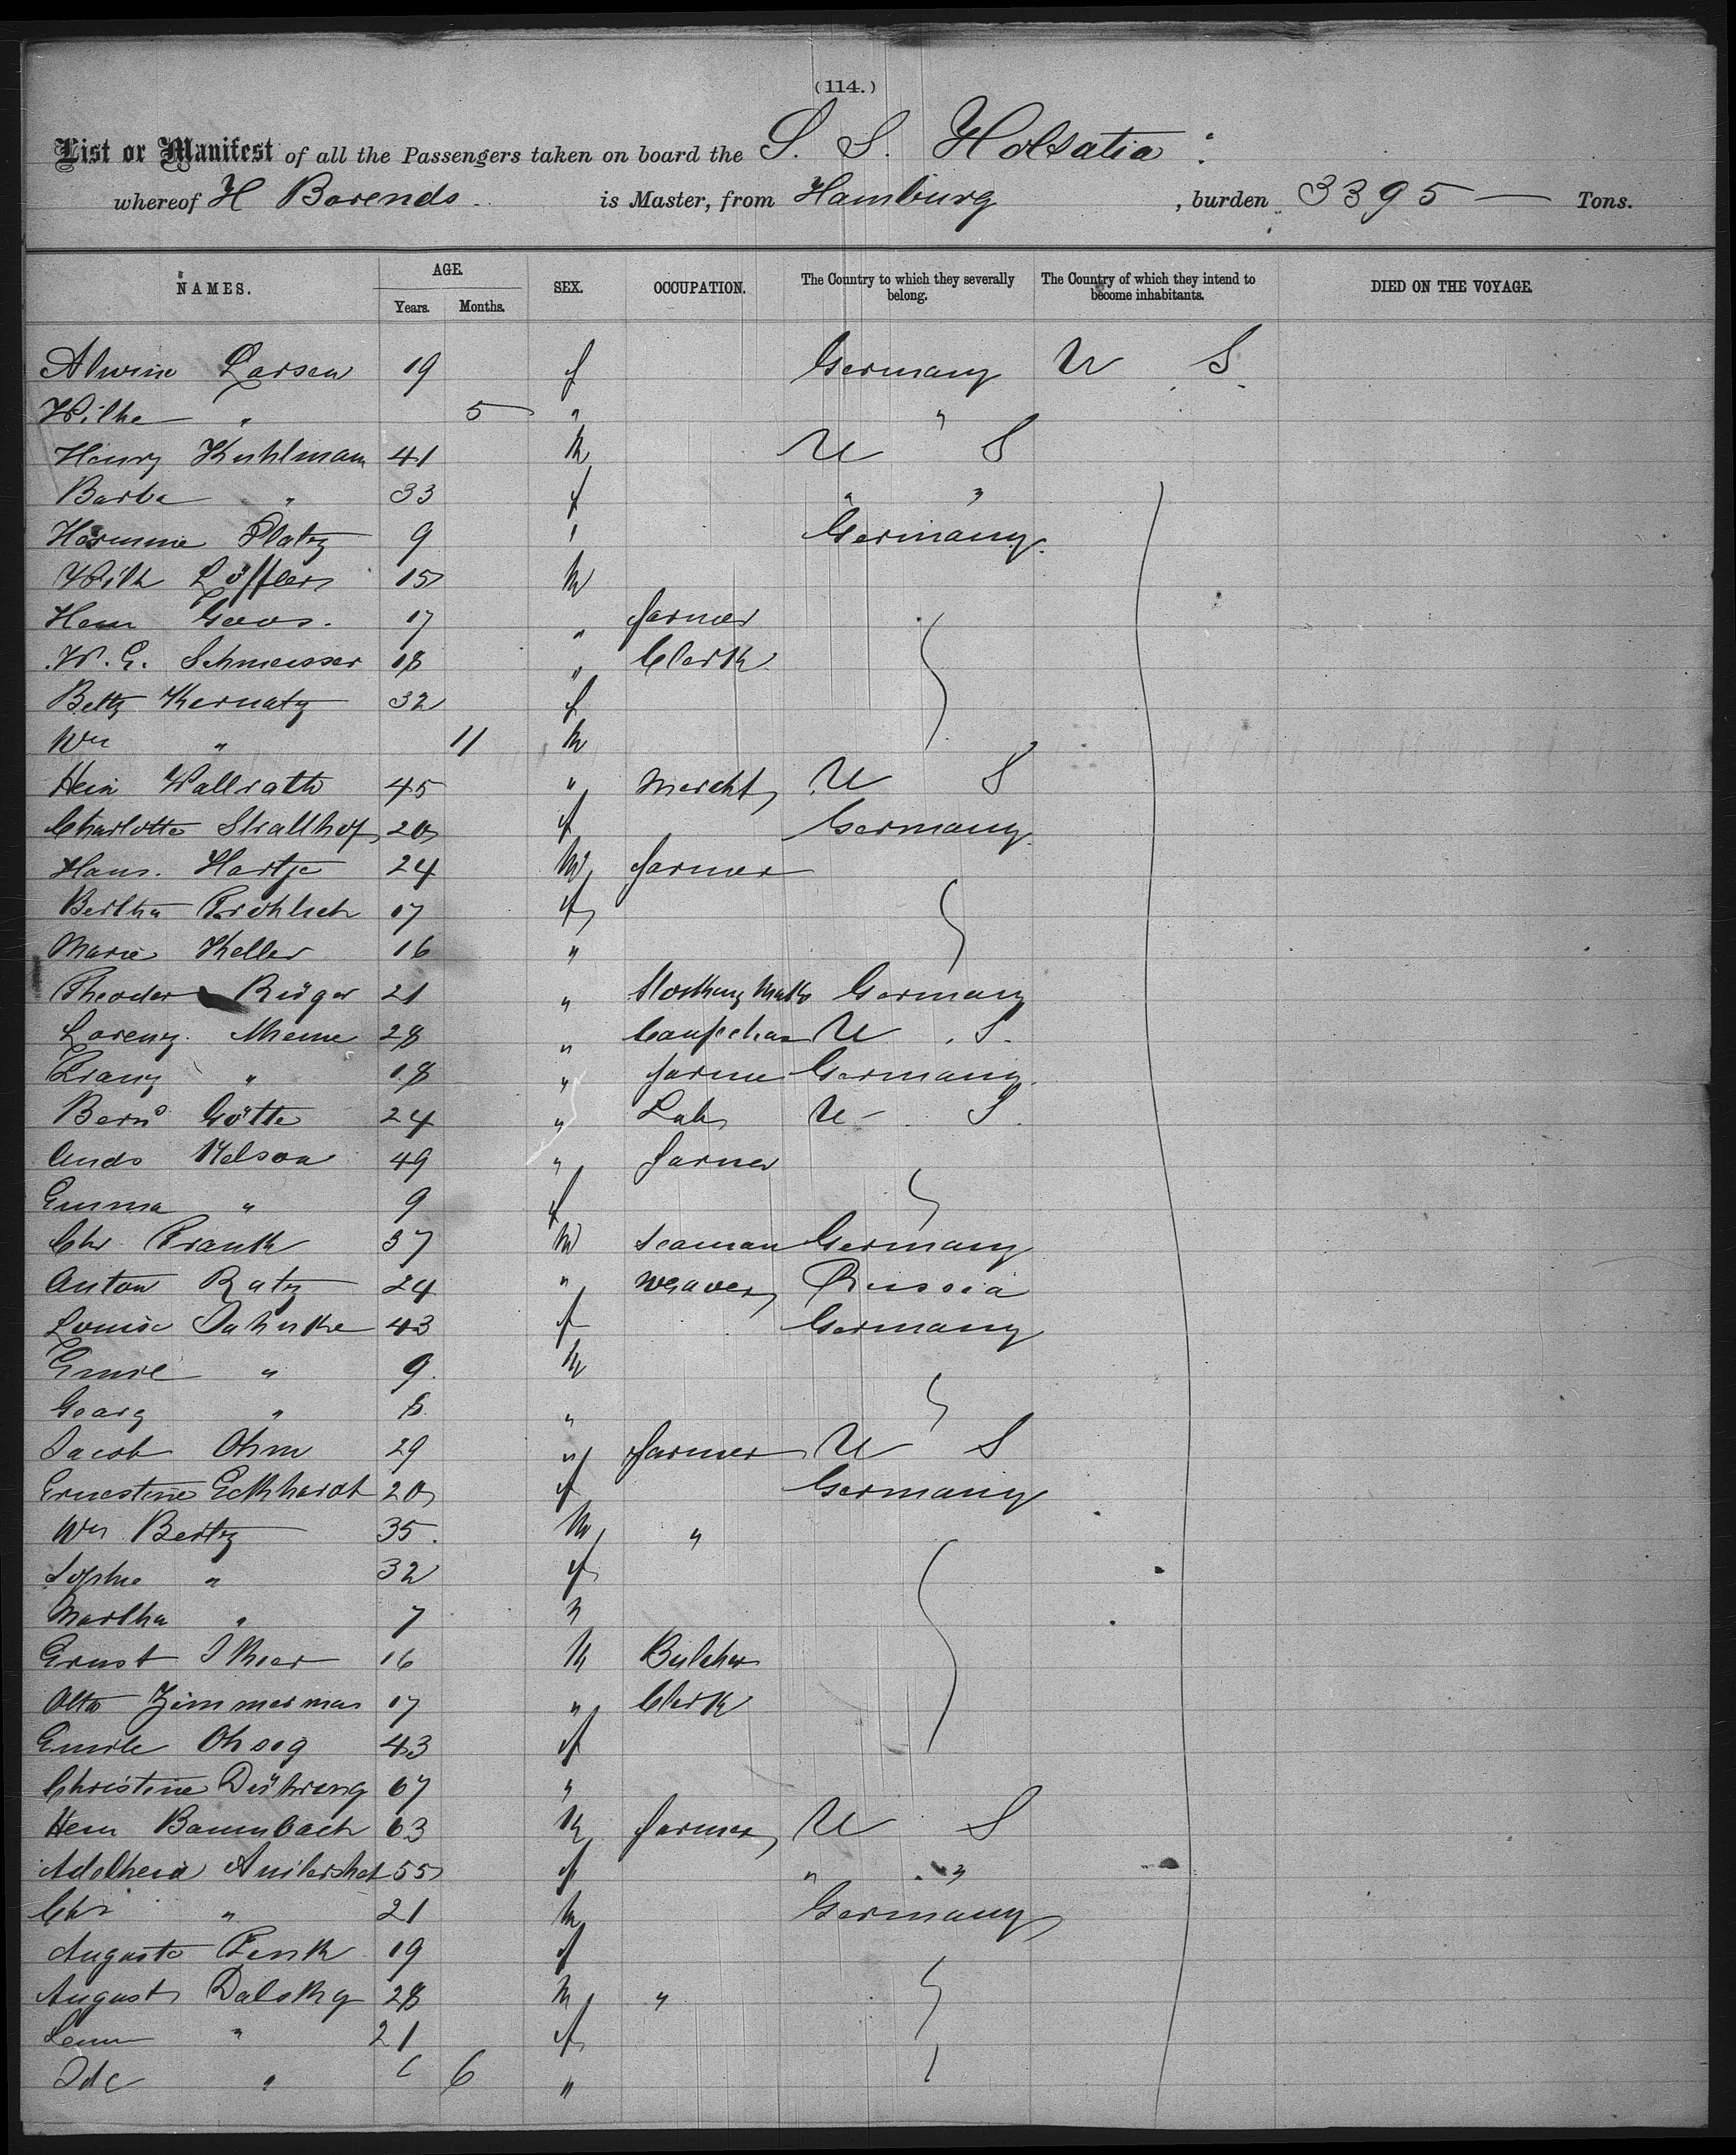 (114.)
List or Manifest of all the Passengers taken on board the S. S. Holsatia
whereof H Barends is Master, from Hamburg, burden 3395 — Tons.
NAMES. AGE. SEX. OCCUPATION. The Country to which they severally belong. The Country of which they intend to become inhabitants. DIED ON THE VOYAGE.
Years. Months.
Alwine Larsen 19 f Germany U S
Wilhe " 5 " "
Henry Kuhlmann 41 m U S
Barba " 33 f " "
Hermine Platz 9 " Germany
Wilh Löffler 15 m
Goos. 17 " farmer
W. G. Schmeisser 18 " Clerk
Betty Kernatz 32 f
Wm " 11 m
Hein Wallrath 45 " Mercht U S
Charlotte Strallhof 20 f Germany
Hans. Hartje 24 m farmer
Bertha Frohlich 17 f
Marie Keller 16 "
Theodor Rüger 21 " Germany
Lorenz Theme 28 " U S.
Franz " 18 " farmer Germany
Bernd Götte 24 " Lab U S.
Ands Nelson 49 " farmer
Emma " 9 f
Chr Frank 37 m seaman Germany
Anton Ratz 24 " weaver Russia
Louise Jahnke 43 f Germany
Emil " 9 m
Georg " 8 "
Jacob Ohm 29 " farmer U S
Ernestine Eckhardt 20 f Germany
Wm Beitz 35 m "
Sophie " 32 f
Martha " 7 "
Ernst 16 m Butcher
Otto Zimmerman 17 " Clerk
Emile 43 f
Christine Dühring 67 "
Baumbach 63 m farmer U S
Adelheid 55 f " "
Chr " 21 m Germany
Auguste Fenk 19 f
August Dalsky 28 m "
" 21 f
Ida " 6 "